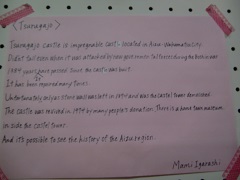 <Tsurugajo>
Tsurugajo castle is impregnable cast- located in Aizu-wakamatsu city.
Didn't fall even when it was attacked by
years have passed since the castle was built
It has been repaired many times.
Unfortunately only stone was left in 1874 and was the castle tower demolished
The castle was revived in 1974 by many people's donation. There is a home town museum
in side the castle tower.
And it's possible to see the history of the Aizu region.
Mami Igarashi